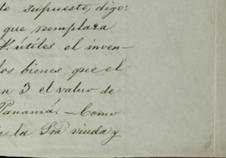 lo supuesto, digo:
que reemplaza
K. útiles el inven-
los bienes que el
n 3 el valor de
Panamá. – Como
e la Sra viuda y